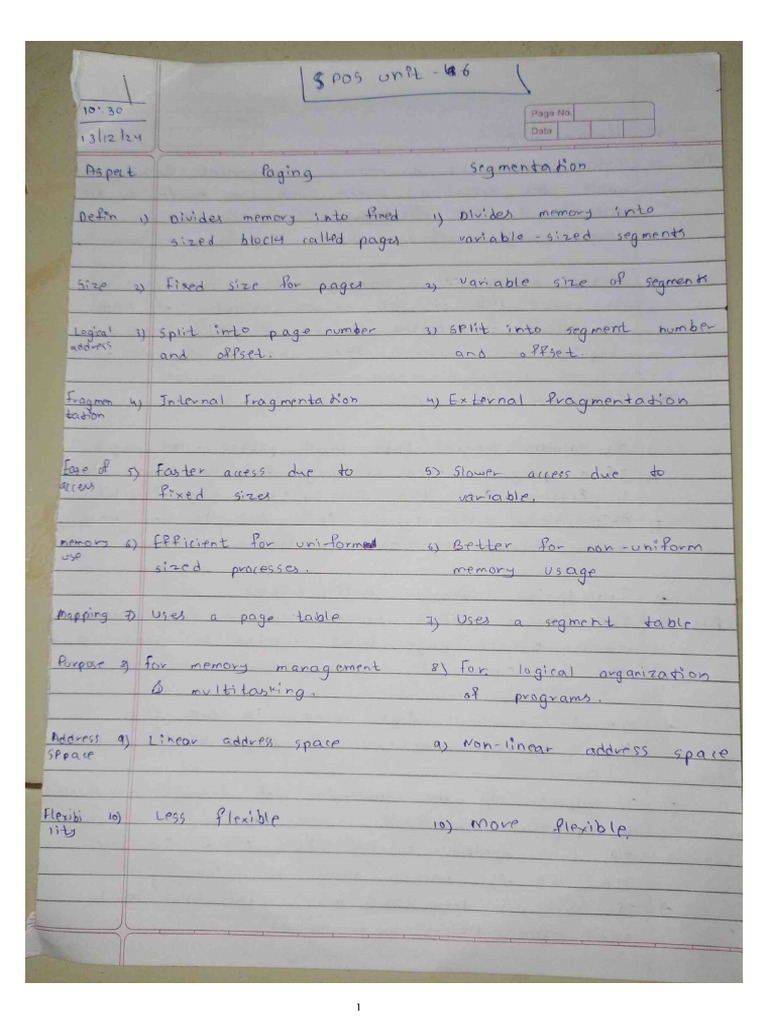 SPOS unit - 6
10:30
13/12/24
Page No.
Date
Aspect Paging Segmentation
Defin 1) Divides memory into fixed 1) Divides memory into
sized blocks called pages variable-sized segments
Size 2) Fixed size for pages 2) variable size of segments
Logical 3) split into page number 3) split into segment number
address and offset. and offset.
Fragmen 4) Internal Fragmentation 4) External fragmentation
tation
Ease of 5) Faster access due to 5) Slower access due to
access fixed sizes variable.
memory 6) Efficient for uni-formed 6) Better for non-uniform
use sized processes. memory usage
Mapping 7) Uses a page table 7) Uses a segment table
Purpose 8) for memory management 8) for logical organization
& multitasking. of programs.
Address 9) Linear address space 9) Non-linear address space
Sppace
Flexibi 10) Less flexible 10) More flexible.
lity
1